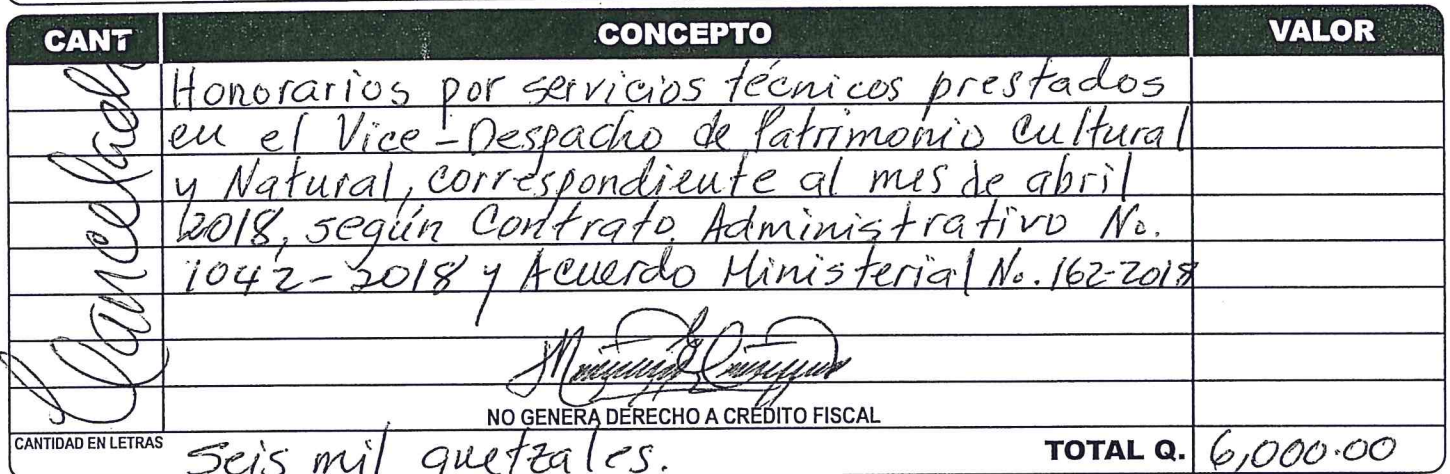 CANT CONCEPTO VALOR
Cancelado
Honorarios por servicios técnicos prestados
en el Vice-Despacho de Patrimonio Cultural
y Natural, correspondiente al mes de abril
2018, según Contrato Administrativo No.
1042-2018 y Acuerdo Ministerial No. 162-2018
NO GENERA DERECHO A CRÉDITO FISCAL
CANTIDAD EN LETRAS Seis mil quetzales. TOTAL Q. 6,000.00